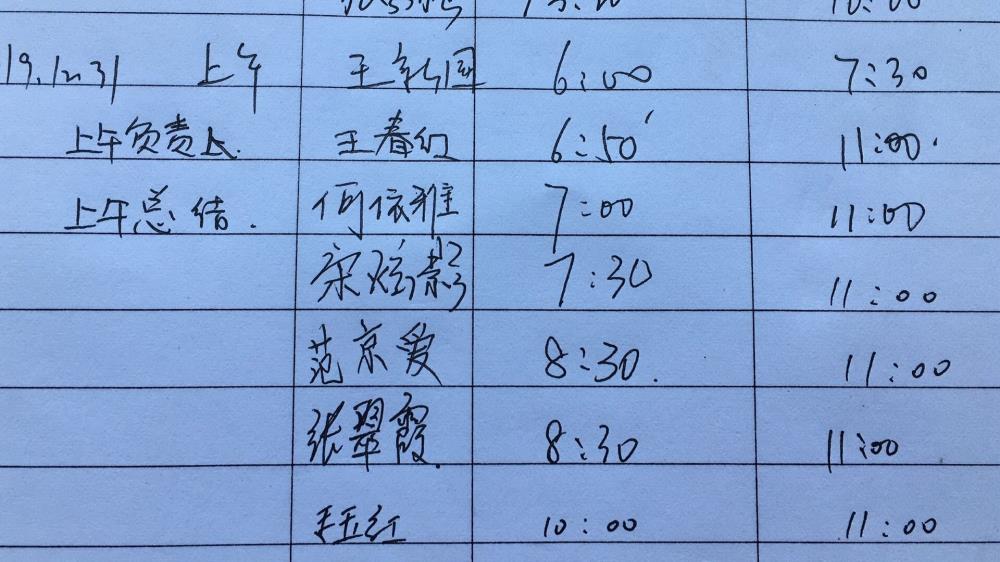 19.12.31 上午 王新国 6:00 7:30
上午负责人. 王春红 6:50' 11:00.
上午总结. 何依雅 7:00 11:00
宋炫 7:30 11:00
范京爱 8:30. 11:00
张翠霞. 8:30 11:00
王玉红 10:00 11:00